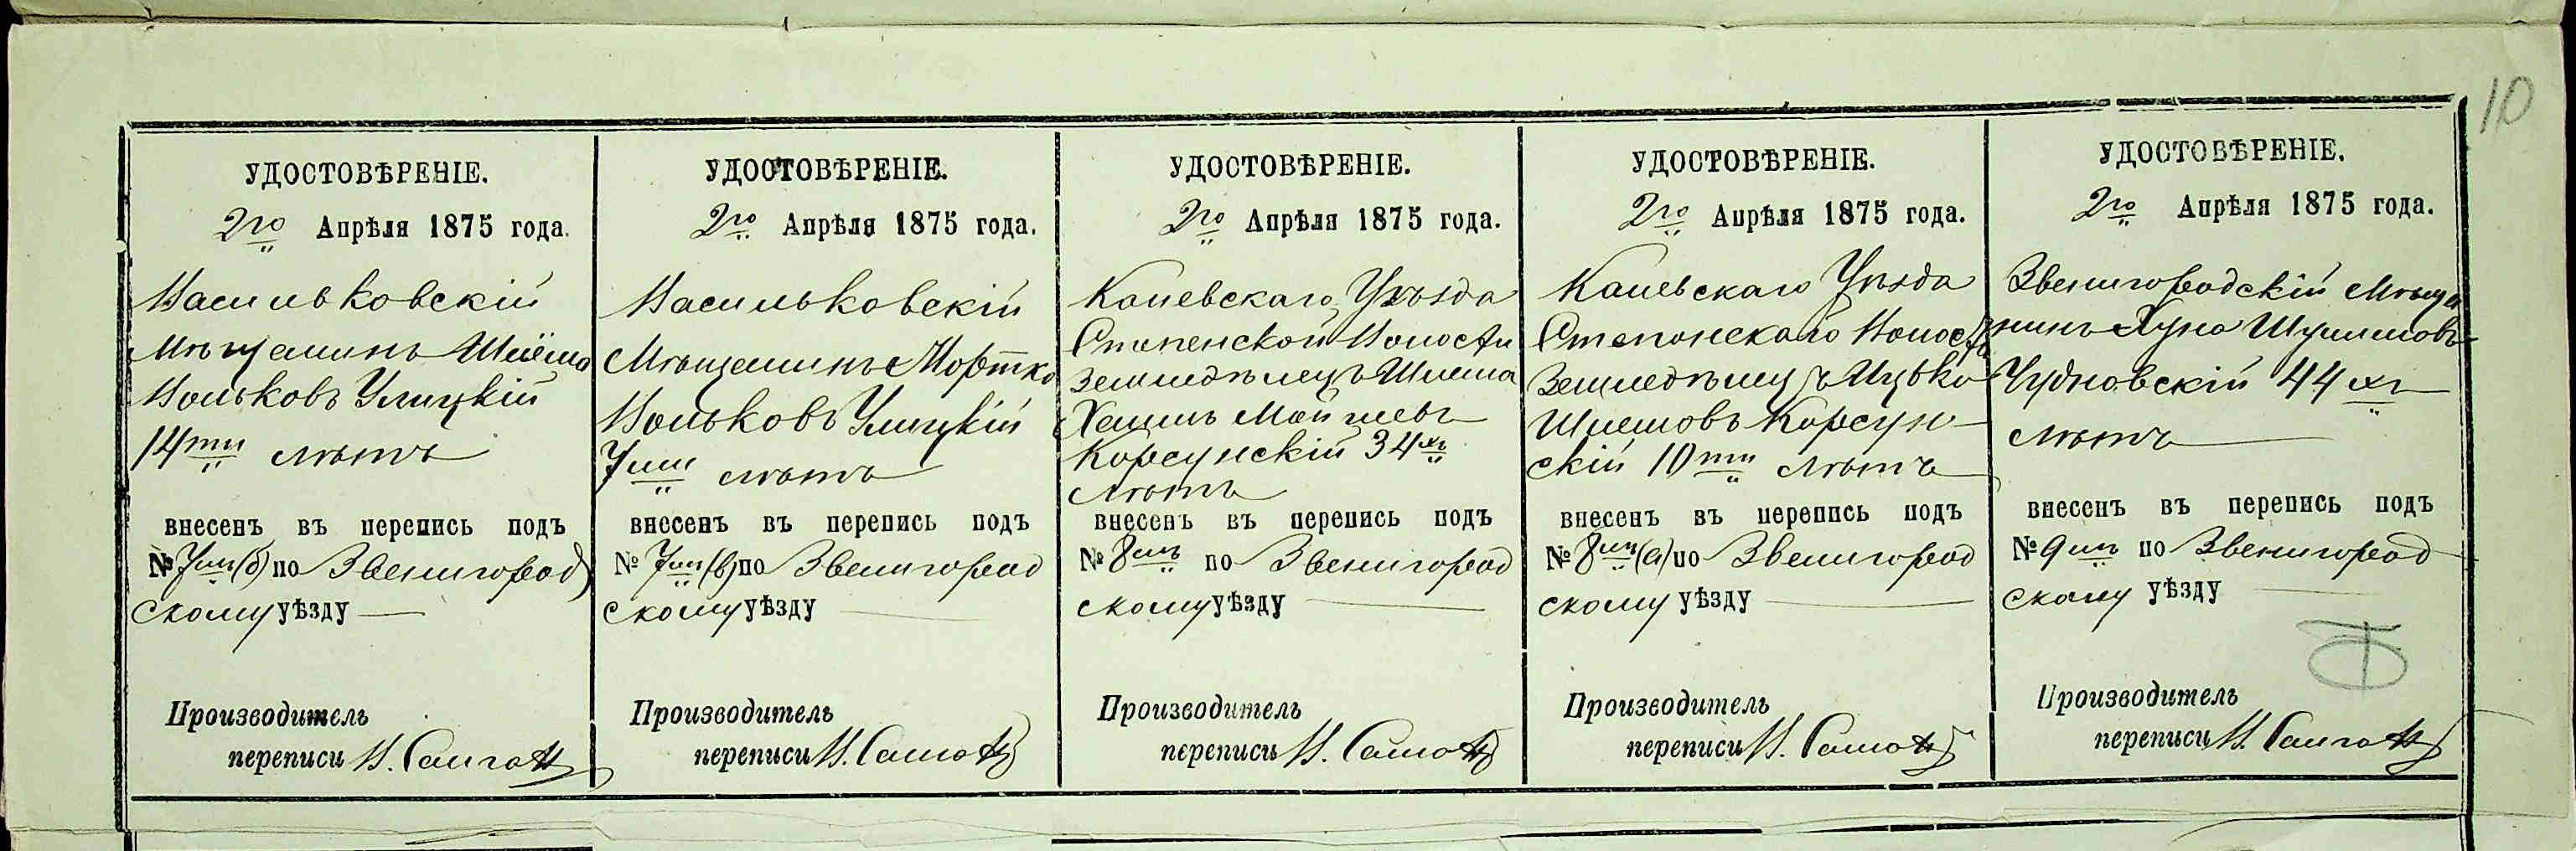 10
УДОСТОВѢРЕНІЕ.
2го Апрѣля 1875 года.
Васильковскій
Мѣщанинъ Шлёма
Вольковъ Улицкій
14ти лѣтъ
внесенъ въ перепись подъ
№ 7мъ (б) по Звенигород
скому уѣзду
Производитель
переписи И.
УДОСТОВѢРЕНІЕ.
2го Апрѣля 1875 года.
Васильковскій
Мѣщанинъ Мортко
Вольковъ Улицкій
7ми лѣтъ
внесенъ въ перепись подъ
№ 7мъ (в) по Звенигород
скому уѣзду
Производитель
переписи И.
УДОСТОВѢРЕНІЕ.
2го Апрѣля 1875 года.
Каневскаго Уѣзда
Степенской Волости
Земледѣлецъ Шлема
Хаимъ Мойшевъ
Корсунскій 34хъ
лѣтъ
внесенъ въ перепись подъ
№ 8мъ по Звенигород
скому уѣзду
Производитель
переписи И.
УДОСТОВѢРЕНІЕ.
2го Апрѣля 1875 года.
Каневскаго Уѣзда
Земледѣлецъ Ицько
Шлемовъ Корсун-
скій 10ти лѣтъ
внесенъ въ перепись подъ
№ 8мъ (а) по Звенигород
скому уѣзду
Производитель
переписи И.
УДОСТОВѢРЕНІЕ.
2го Апрѣля 1875 года.
Звенигородскій Мѣща
нинъ Хуна Шулимовъ
Чудновскій 44хъ
лѣтъ
внесенъ въ перепись подъ
№ 9мъ по Звенигород
скому уѣзду
Производитель
переписи И.